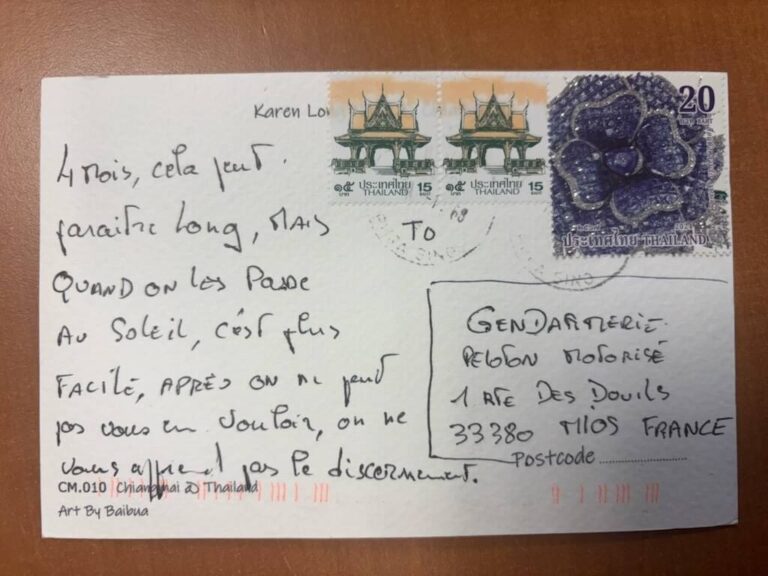 Karen Lo
20
๑๕ ประเทศไทย 15
บาท THAILAND BAHT
๑๕ ประเทศไทย 15
บาท THAILAND BAHT
ประเทศไทย THAILAND
TO
4 Mois, cela peut
paraitre long, MAIS
QUAND ON LES PASSE
AU SOLEIL, c'est plus
FACILE, APRÈS ON NE peut
pas vous en vouloir, on ne
vous apprend pas le discernement.
GENDARMERIE
PELOTON MOTORISÉ
1 RTE DES DOUILS
33380 MIOS FRANCE
Postcode
CM.010 Chiangmai Thailand
Art By Baibua